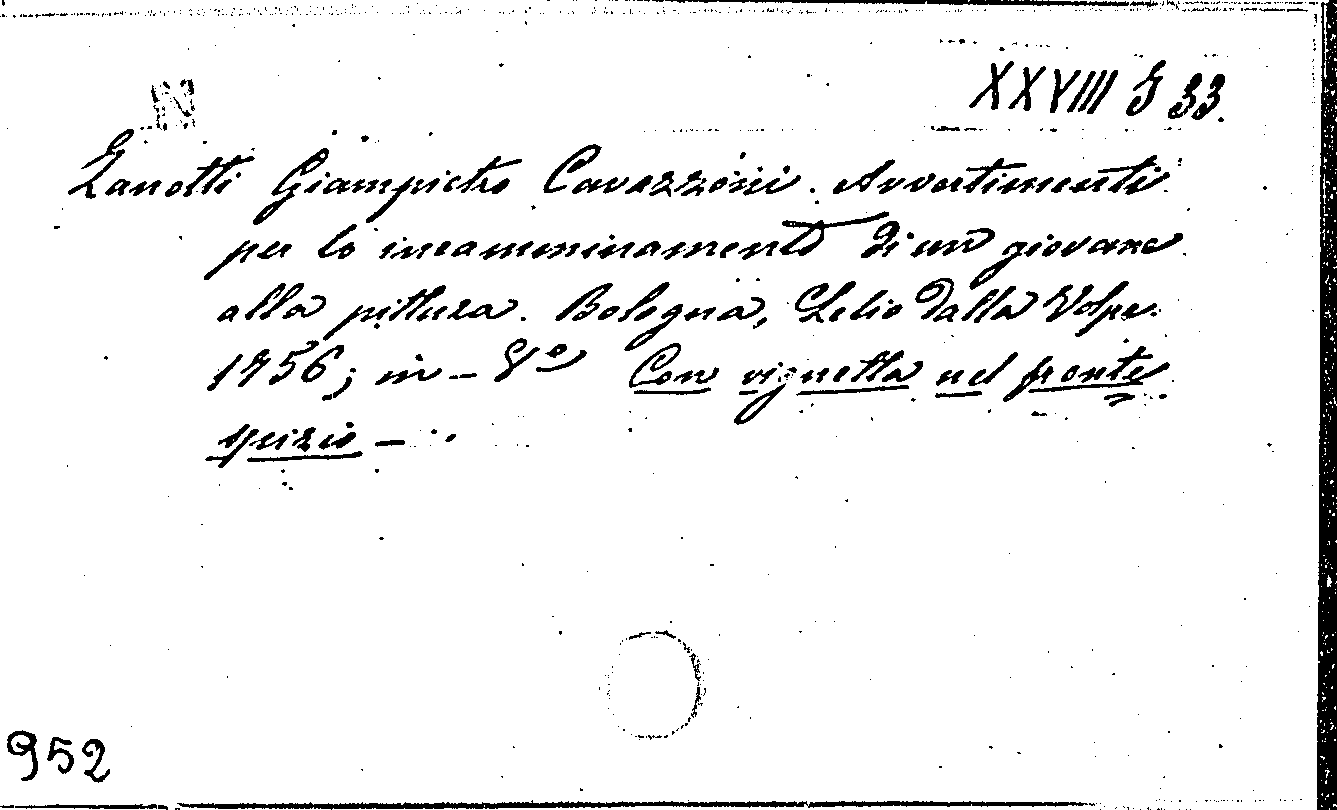 N
XXVIII J 33.
Zanotti Giampietro Cavazzoni. Avvertimenti
per lo incamminamento di un giovane
alla pittura. Bologna, Lelio Dalla Volpe
1756; in-8º Con vignetta nel fronte
spizio —.
952